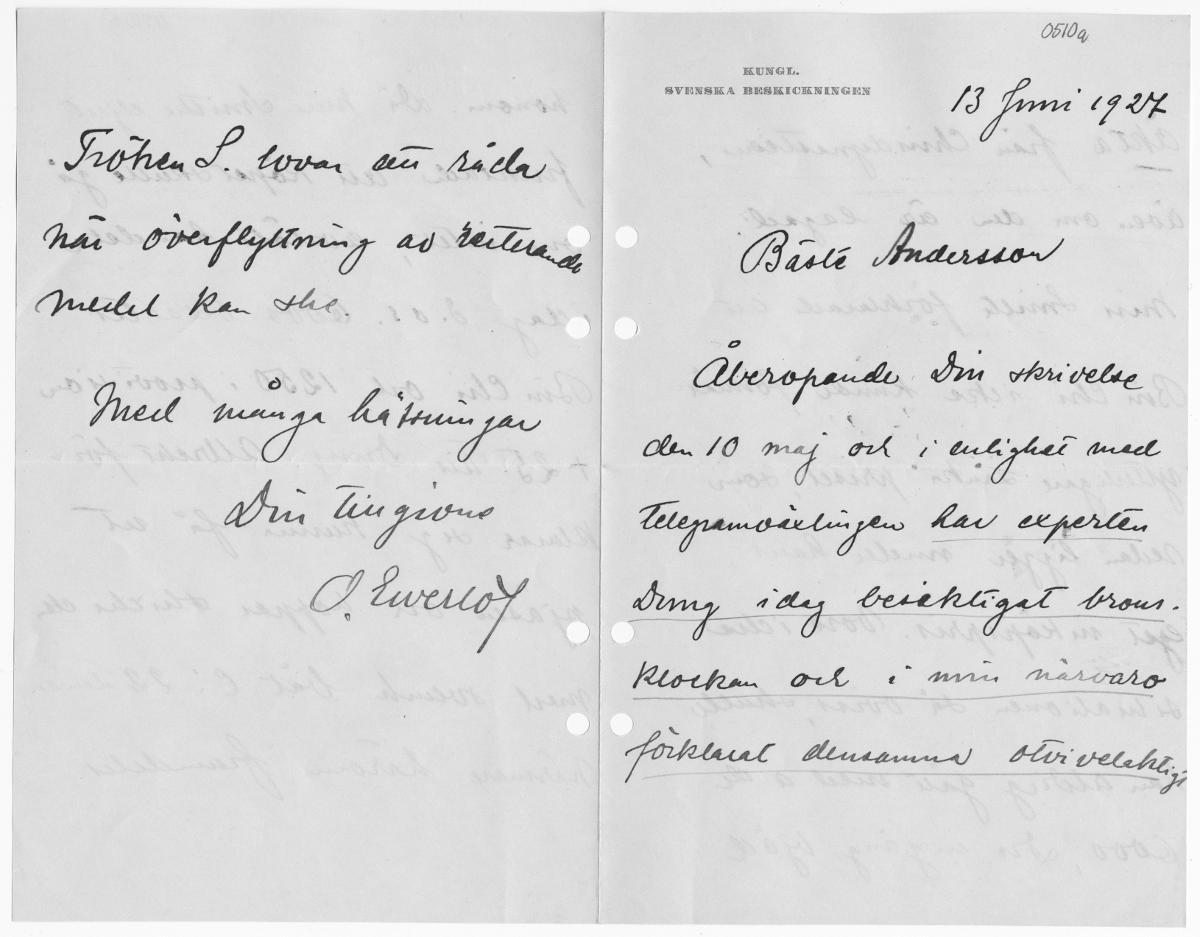 0510a
KUNGL.
SVENSKA BESKICKNINGEN
13 Juni 1927
Bäste Andersson
Åberopande Din skrivelse
den 10 maj och i enlighet med
telegramväxlingen har experten
Dung idag besiktigat brons-
klockan och i min närvaro
förklarat densamma otvivelaktigt
Fröken S. lovar att råda
när överflyttning av resterande
medel kan ske.
Med många hälsningar
Din tillgivne
O. Ewerlöf